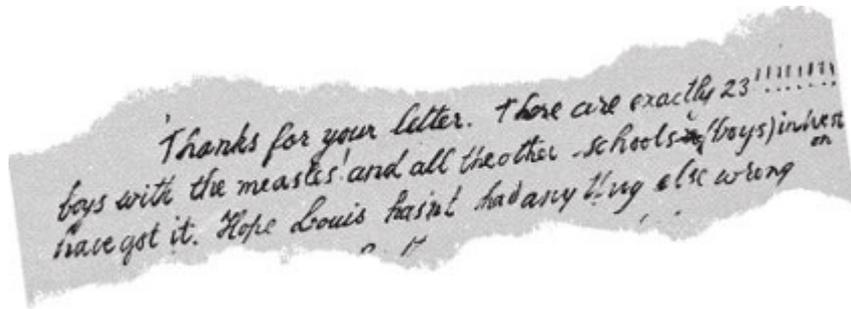 Thanks for your letter. There are exactly 23 !!!!!!!!
boys with the measles! and all the other schools (boys) in
have got it. Hope Louis hasnt had any thing else wrong on